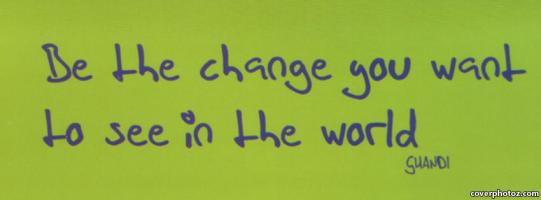 Be the change you want
to see in the world
GHANDI
coverphotoz.com